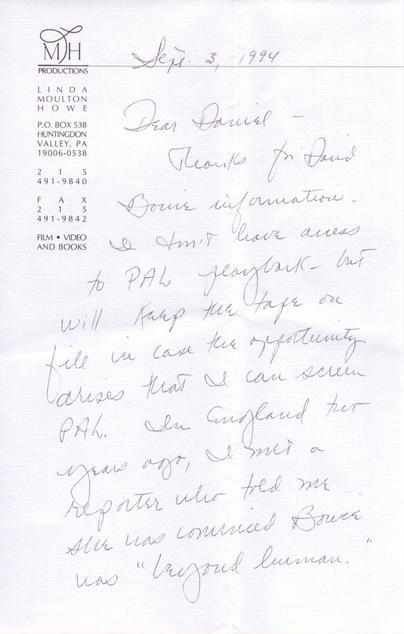 MH
PRODUCTIONS
LINDA
MOULTON
HOWE
P.O. BOX 538
HUNTINGDON
VALLEY, PA
19006-0538
2 1 5
491-9840
F A X
2 1 5
491-9842
FILM • VIDEO
AND BOOKS
Sept. 3, 1994
Dear Daniel –
Thanks for David
Bowie information.
I don't have access
to PAL playback – but
will keep the tape on
file in case the opportunity
arises that I can screen
PAL. In England two
years ago, I met a
reporter who told me
she was convinced Bowie
was "beyond human."